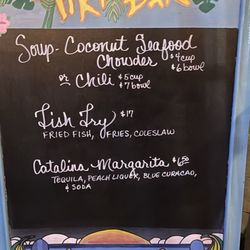 TIKI BAR
Soup- Coconut Seafood
Chowder $4 cup
$6 bowl
or Chili $5 cup
$7 bowl
Fish Fry $17
FRIED FISH, FRIES, COLESLAW
Catalina Margarita
TEQUILA, PEACH LIQUER, BLUE CURACAO,
& SODA